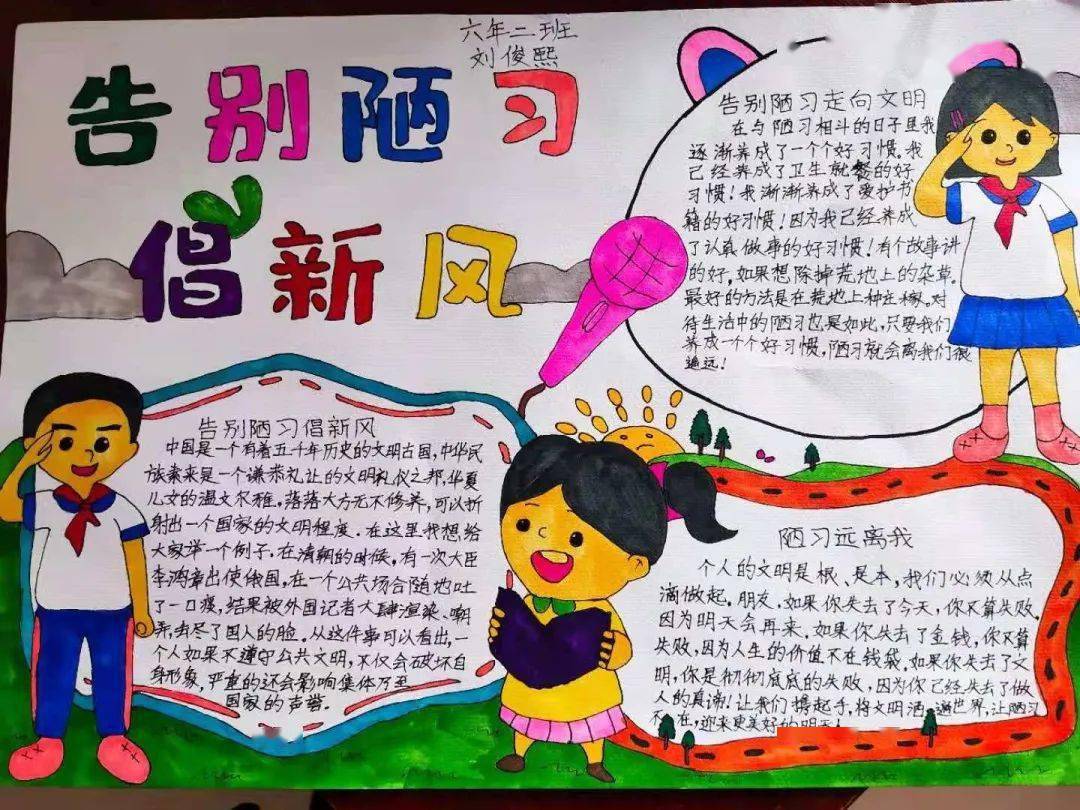 六年二班
刘俊熙
告别陋习
倡新风
告别陋习走向文明
在与陋习相斗的日子里我
逐渐养成了一个个好习惯。我
已经养成了卫生就餐的好
习惯！我渐渐养成了爱护书
籍的好习惯！因为我已经养成
了认真做事的好习惯！有个故事讲
的好，如果想除掉荒地上的杂草。
最好的方法是在荒地上种庄稼。对
待生活中的陋习也是如此，只要我们
养成一个个好习惯，陋习就会离我们很
遥远！
告别陋习倡新风
中国是一个有着五千年历史的文明古国，中华民
族素来是一个谦恭礼让的文明礼仪之邦，华夏
儿女的温文尔雅，落落大方无不修养，可以折
射出一个国家的文明程度。在这里我想给
大家举一个例子，在清朝的时候，有一次大臣
李鸿章出使俄国，在一个公共场合随地吐
了一口痰，结果被外国记者大肆渲染、嘲
弄，丢尽了国人的脸。从这件事可以看出，一
个人如果不遵守公共文明，不仅会破坏自
身形象，严重的还会影响集体乃至
国家的声誉。
陋习远离我
个人的文明是根、是本，我们必须从点
滴做起。朋友，如果你失去了今天，你不算失败，
因为明天会再来，如果你失去了金钱，你不算
失败，因为人生的价值不在钱袋。如果你失去了文
明，你是彻彻底底的失败，因为你已经失去了做
人的真谛！让我们携起手，将文明洒遍世界，让陋习
不在，迎来更美好的明天！